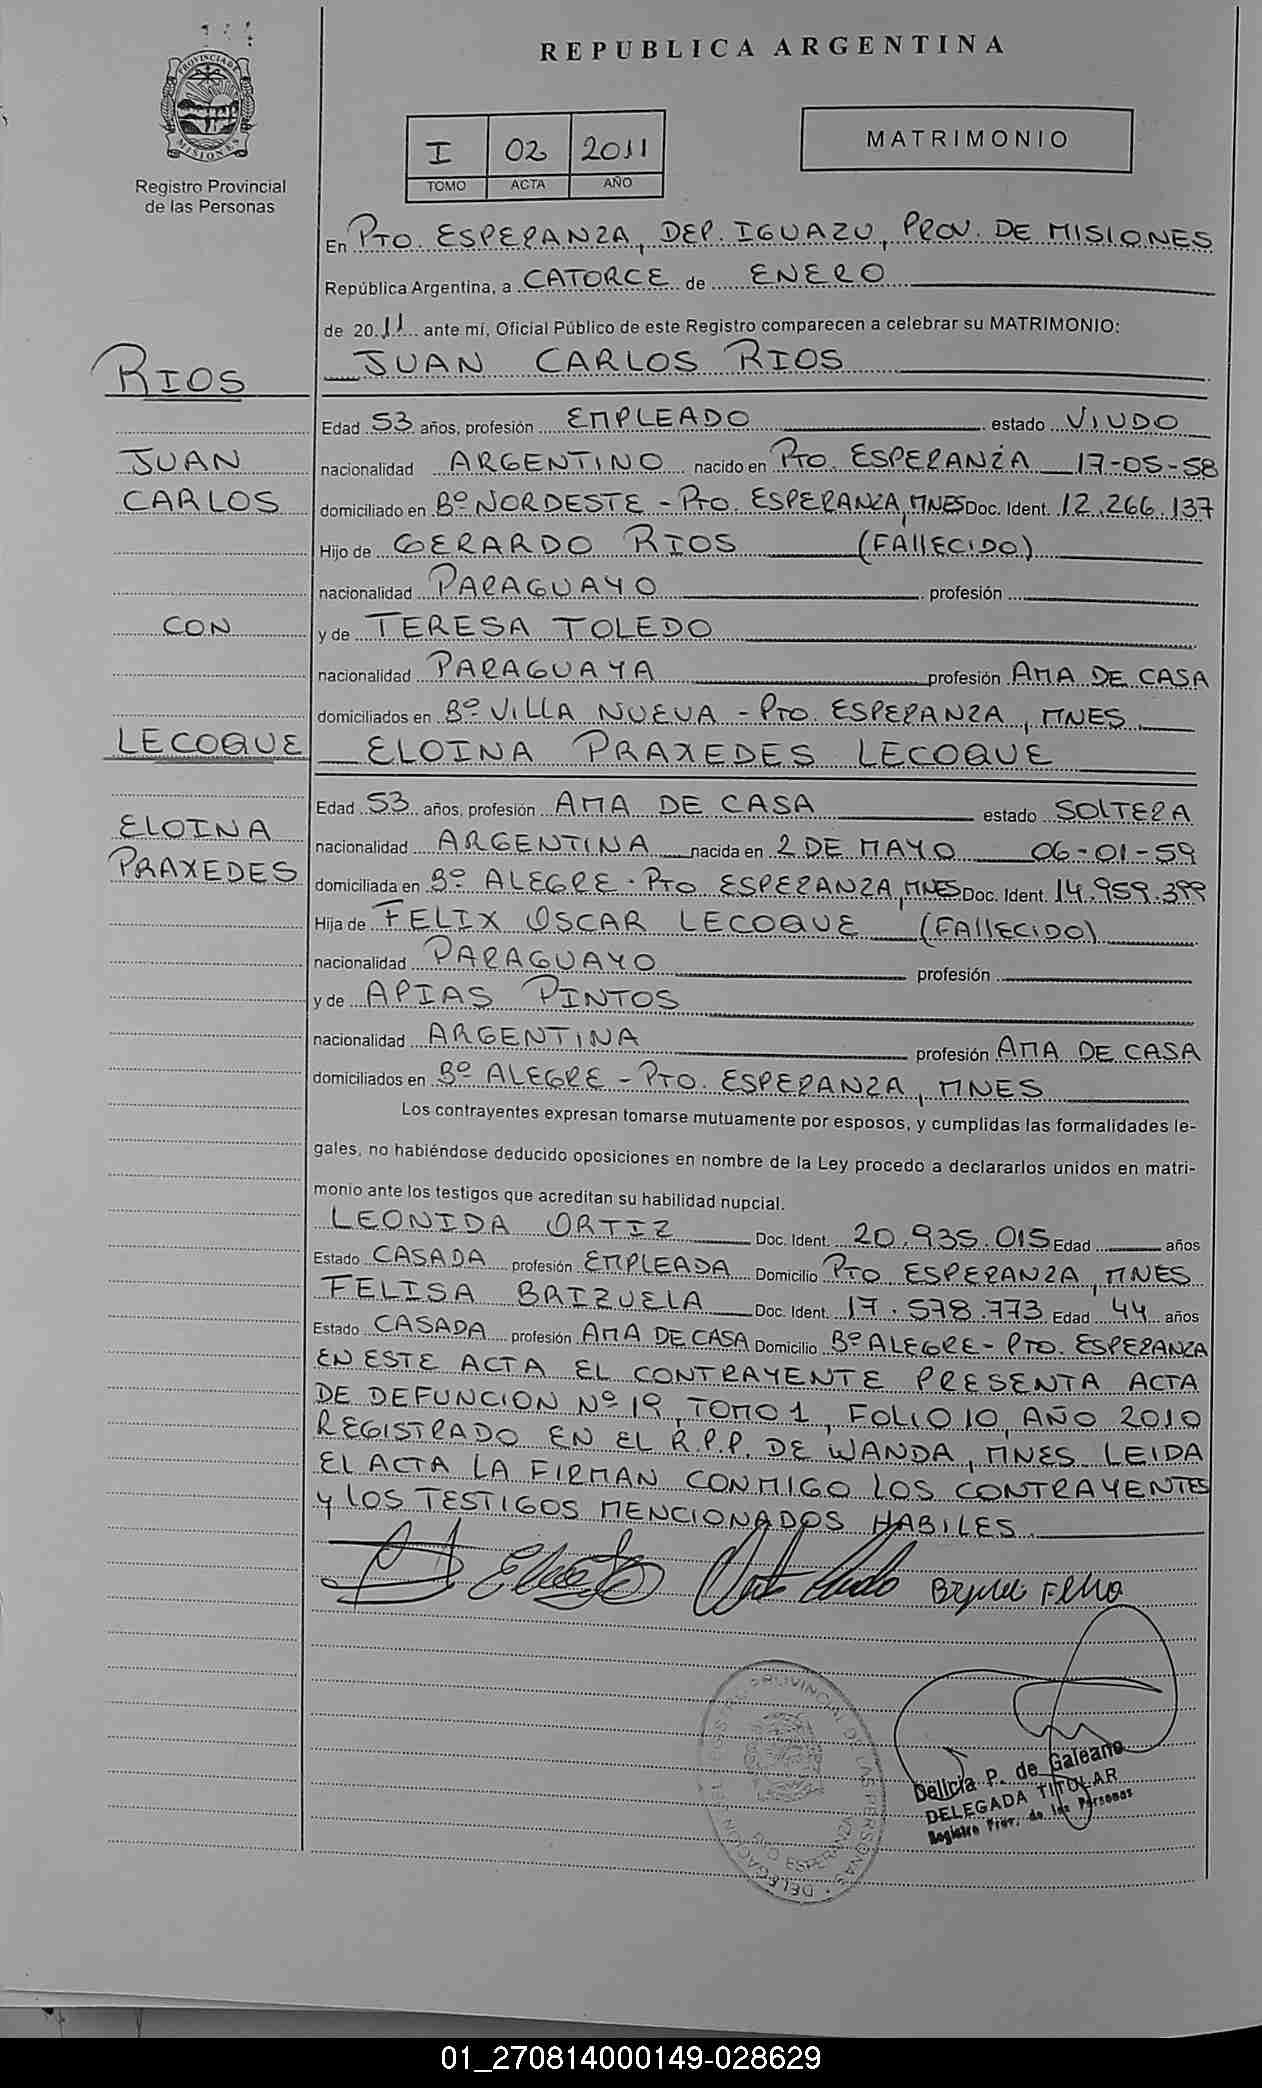 REPUBLICA ARGENTINA
PROVINCIA DE MISIONES
Registro Provincial
de las Personas
I 02 2011
TOMO ACTA AÑO
MATRIMONIO
En PTO. ESPERANZA, DEP. IGUAZU, PROV. DE MISIONES
República Argentina, a CATORCE de ENERO
de 2011 ante mí, Oficial Público de este Registro comparecen a celebrar su MATRIMONIO:
RIOS
JUAN CARLOS RIOS
Edad 53 años, profesión EMPLEADO estado VIUDO
JUAN
nacionalidad ARGENTINO nacido en PTO. ESPERANZA 17-05-58
CARLOS
domiciliado en Bº NORDESTE - PTO. ESPERANZA, MNES Doc. Ident. 12.266.137
Hijo de GERARDO RIOS (FALLECIDO)
nacionalidad PARAGUAYO profesión
CON
y de TERESA TOLEDO
nacionalidad PARAGUAYA profesión AMA DE CASA
domiciliados en Bº VILLA NUEVA - PTO. ESPERANZA, MNES.
LECOQUE
ELOINA PRAXEDES LECOQUE
Edad 53 años, profesión AMA DE CASA estado SOLTERA
ELOINA
nacionalidad ARGENTINA nacida en 2 DE MAYO 06-01-59
PRAXEDES
domiciliada en Bº ALEGRE - PTO ESPERANZA, MNES Doc. Ident. 14.959.399
Hija de FELIX OSCAR LECOQUE (FALLECIDO)
nacionalidad PARAGUAYO profesión
y de APIAS PINTOS
nacionalidad ARGENTINA profesión AMA DE CASA
domiciliados en Bº ALEGRE - PTO. ESPERANZA, MNES
Los contrayentes expresan tomarse mutuamente por esposos, y cumplidas las formalidades le-
gales, no habiéndose deducido oposiciones en nombre de la Ley procedo a declararlos unidos en matri-
monio ante los testigos que acreditan su habilidad nupcial.
LEONIDA ORTIZ Doc. Ident. 20.935.015 Edad años
Estado CASADA profesión EMPLEADA Domicilio PTO ESPERANZA, MNES
FELISA BRIZUELA Doc. Ident. 17.578.773 Edad 44 años
Estado CASADA profesión AMA DE CASA Domicilio Bº ALEGRE - PTO. ESPERANZA
EN ESTE ACTA EL CONTRAYENTE PRESENTA ACTA
DE DEFUNCION Nº 19, TOMO 1, FOLIO 10, AÑO 2010
REGISTRADO EN EL R.P.P. DE WANDA, MNES LEIDA
EL ACTA LA FIRMAN CONMIGO LOS CONTRAYENTES
Y LOS TESTIGOS MENCIONADOS HABILES
DELEGACION DEL REGISTRO PROVINCIAL DE LAS PERSONAS
PTO ESPERANZA
Delicia P. de Galeano
DELEGADA TITULAR
Registro Prov. de las Personas
01_270814000149-028629